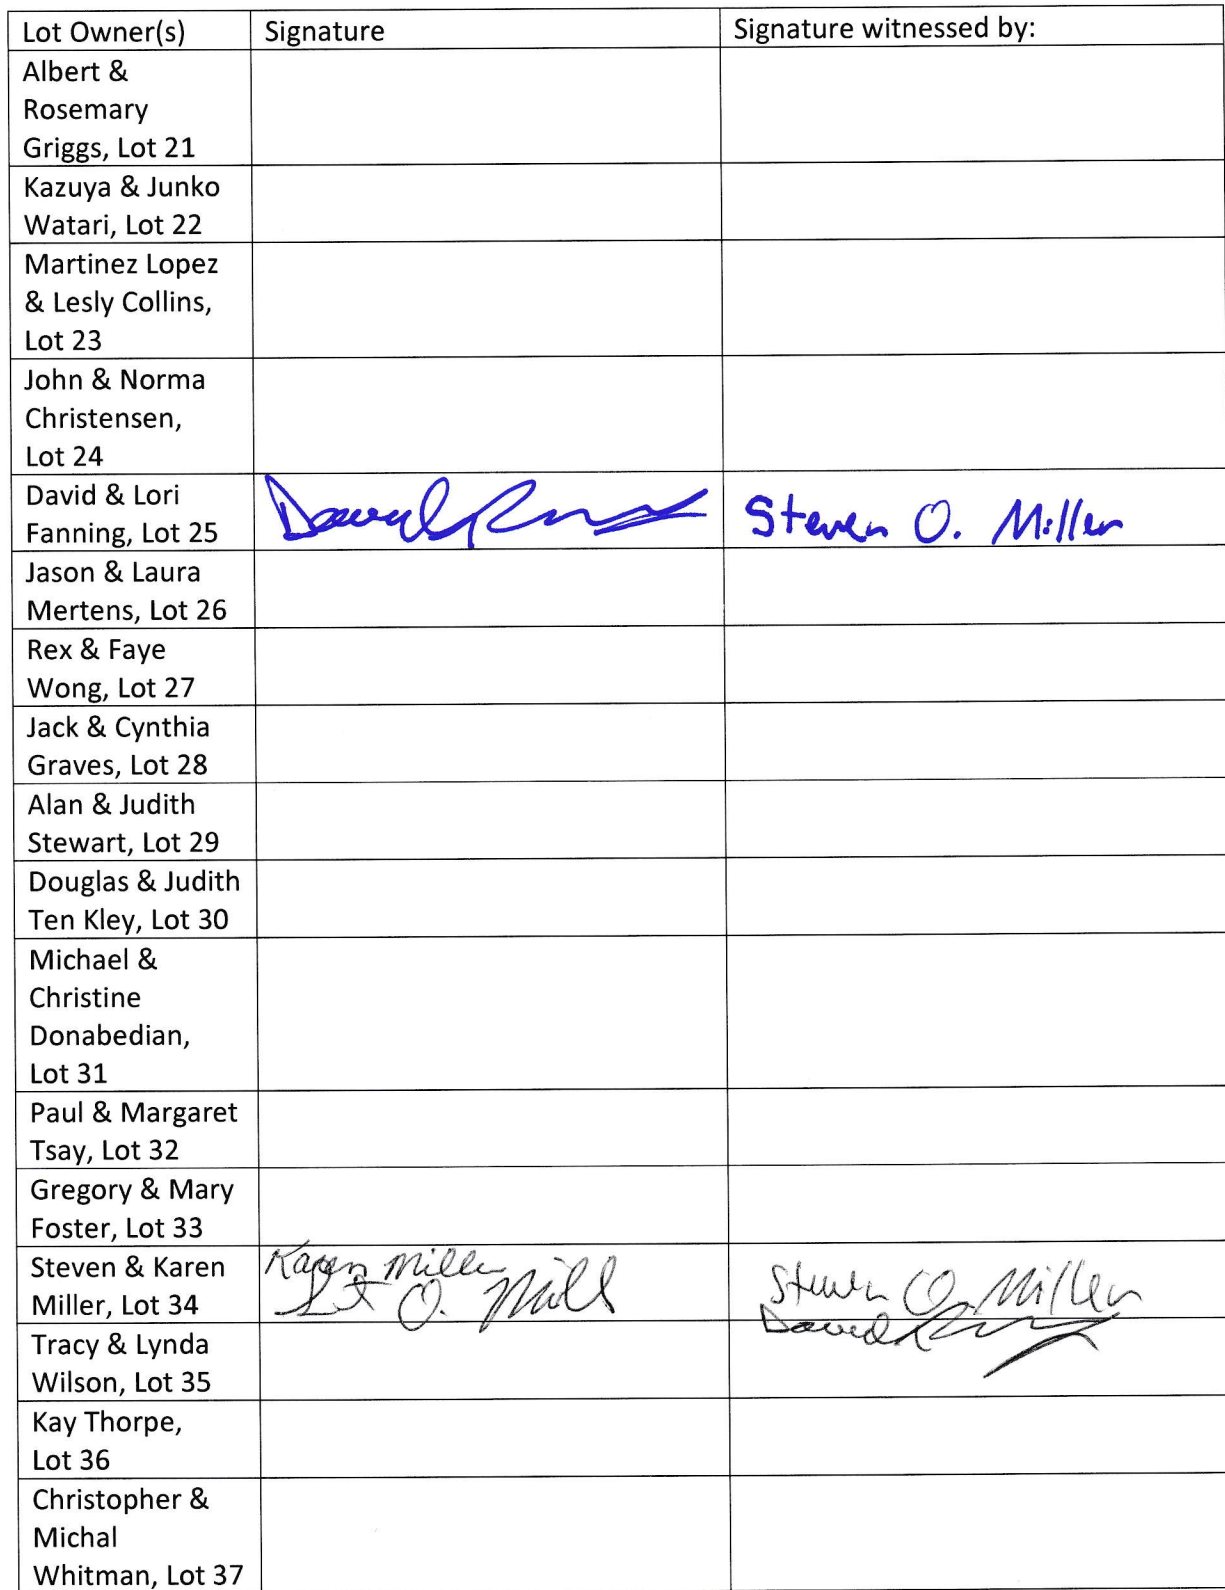 Lot Owner(s) Signature Signature witnessed by:
Albert &
Rosemary
Griggs, Lot 21
Kazuya & Junko
Watari, Lot 22
Martinez Lopez
& Lesly Collins,
Lot 23
John & Norma
Christensen,
Lot 24
David & Lori
Fanning, Lot 25
David Steven O. Miller
Jason & Laura
Mertens, Lot 26
Rex & Faye
Wong, Lot 27
Jack & Cynthia
Graves, Lot 28
Alan & Judith
Stewart, Lot 29
Douglas & Judith
Ten Kley, Lot 30
Michael &
Christine
Donabedian,
Lot 31
Paul & Margaret
Tsay, Lot 32
Gregory & Mary
Foster, Lot 33
Steven & Karen
Miller, Lot 34
Karen Miller
O. Mill
Steven O. Miller
David
Tracy & Lynda
Wilson, Lot 35
Kay Thorpe,
Lot 36
Christopher &
Michal
Whitman, Lot 37